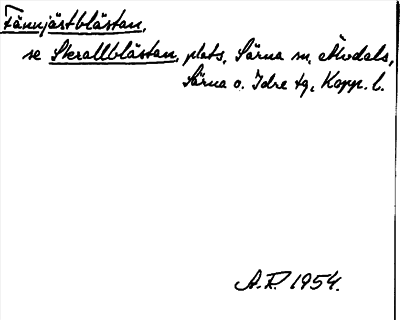 Tännjärtblästan,
se Skrallblästan, plats, Särna sn, Älvdals,
Särna o. Idre tg, Kopp. l.
A.R. 1954.